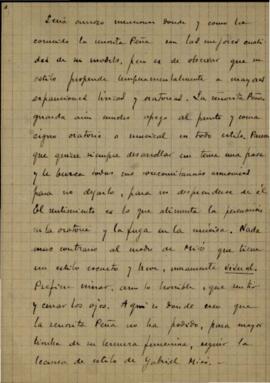 Sería curioso mencionar donde y como ha
corrido la señorita Peña con las mejores cualidades
de su modelo, pero es de observar que su
estilo propende temperamentalmente a mayores
expansiones lírica y oratorias. La señorita Peña
guarda aún mucho apego al punto y coma
signo oratorio o musical en todo estilo. Parece
que quiere siempre desarrollar un tema una frase
y le busca todas sus concomitancias armónicas
para no dejarlo, para no desprenderse de él
El sentimiento es lo que alimenta la permanencia
en la oratoria y la fuga en la música. Nada
mas contrario al modo de Miró que tiene
un estilo escueto y leve, meramente visual.
Prefiere mirar, aun lo horrible, que sentir
y cerrar los ojos. Aquí es donde creo que
la señorita Peña no ha podido, para mayor
timbre de su ternura femenina, seguir la
lección de estilo de Gabriel Miró.